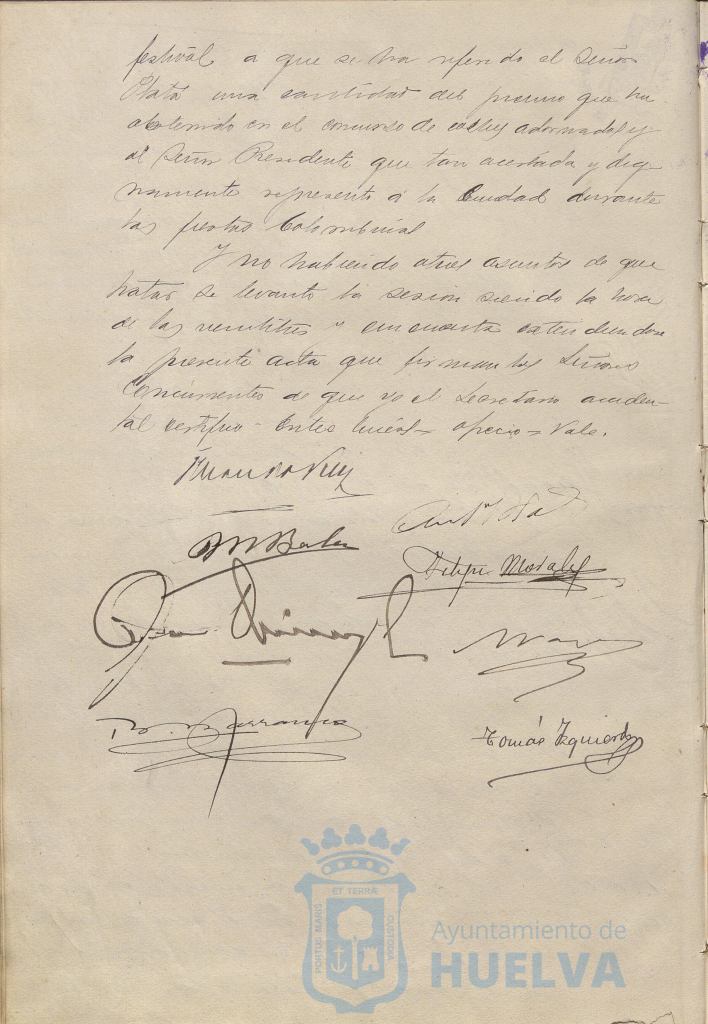 festival a que se ha referido el Señor
Plata una cantidad del premio que ha
obtenido en el concurso de coches adornados y
al Señor Presidente que tan acertada y dig-
namente representó á la Ciudad durante
las fiestas Colombinas
Y no habiendo otros asuntos de que
tratar se levantó la sesion siendo la hora
de las veintitres y cincuenta extendiendose
la presente acta que firman los Señores
Concurrentes de que yo el Secretario acciden-
tal certifico - Entre lineas = aprecio = Vale.
Felipe Morales
Barranca
Tomás Izquierdo
ET TERRA
PORTUS MARIS
CUSTODIA
Ayuntamiento de
HUELVA